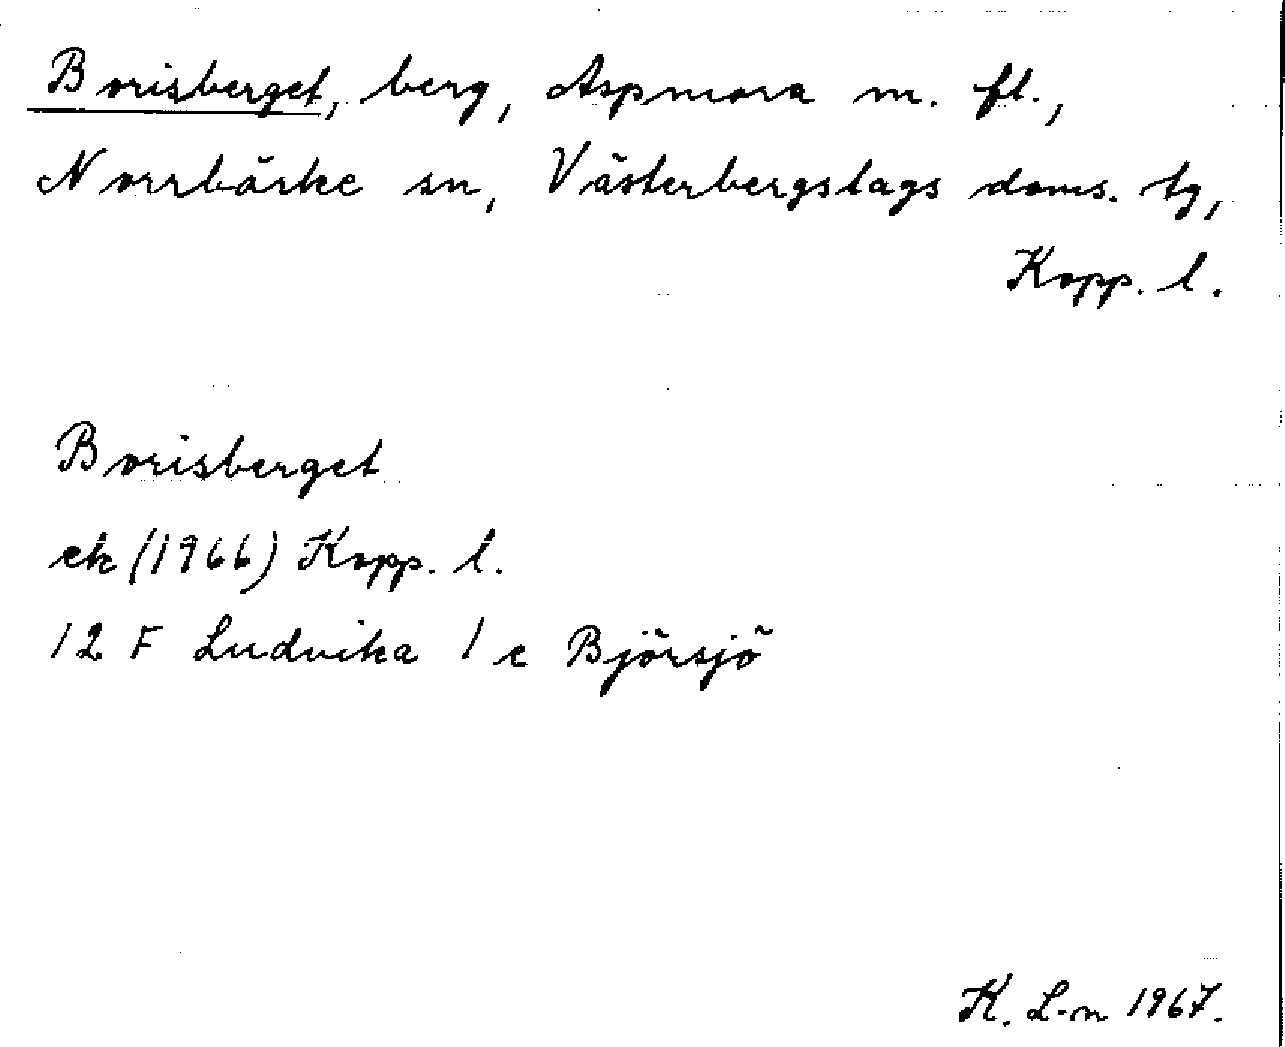 Borisberget, berg, Aspmora m. fl.,
Norrbärke sn, Västerbergslags doms. tg,
Kopp. l.
Borisberget
ek (1966) Kopp. l.
12 F Ludvika 1 e Björsjö
K. L-n 1967.